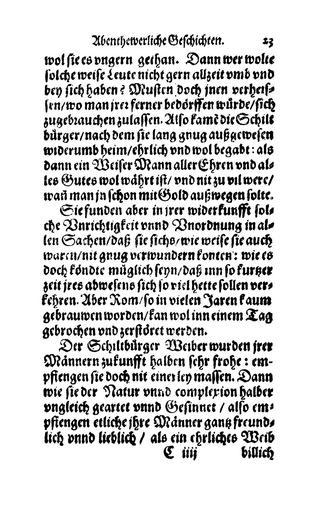 Abenthewerliche Geschichten. 23
wol sie es vngern gethan. Dann wer wolte
solche weise Leute nicht gern allzeit vmb vnd
bey sich haben? Musten doch jnen verheis-
sen/wo man jrer ferner bedörffen würde/sich
zugebrauchen zulassen. Also kamē die Schilt
bürger/nach dem sie lang gnug außgewesen
widerumb heim/ehrlich vnd wol begabt: als
dann ein Weiser Mann aller Ehren vnd al-
les Gutes wol währt ist/ vnd nit zu vil were/
wañ man jn schon mit Gold außwegen solte.
Sie funden aber in jrer widerkunfft sol-
che Vnrichtigkeit vnnd Vnordnung in al-
len Sachen/daß sie sichs/wie weise sie auch
waren/nit gnug verwundern konten: wie es
doch köndte müglich seyn/daß inn so kurtzer
zeit jres abwesens sich so viel hette sollen ver-
kehren. Aber Rom/so in vielen Jaren kaum
gebrauwen worden/kan wol inn einem Tag
gebrochen vnd zerstöret werden.
Der Schiltbürger Weiber wurden jrer
Männern zukunfft halben sehr frohe: em-
pfiengen sie doch nit einerley massen. Dann
wie sie der Natur vnnd complexion halber
vngleich geartet vnnd Gesinnet / also em-
pfiengen etliche jhre Männer gantz freund-
lich vnnd lieblich / als ein ehrliches Weib
C iiij billich